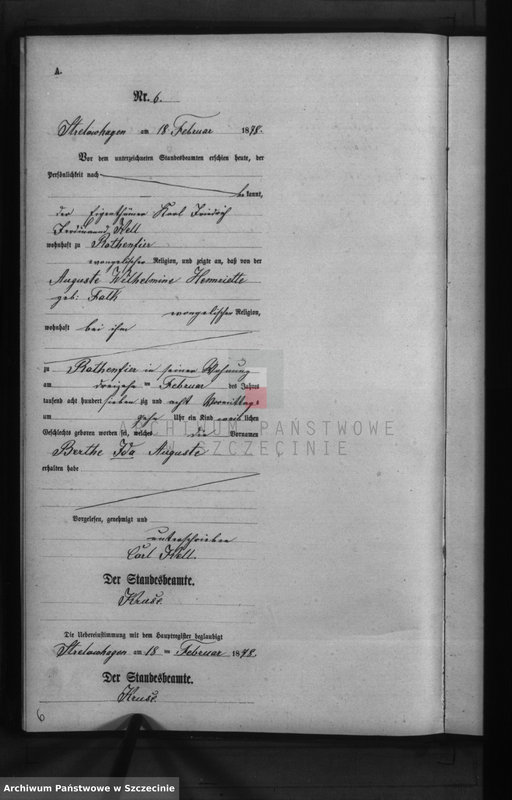 A.
Nr. 6.
Strelowhagen am 18 Februar 1878.
Vor dem unterzeichneten Standesbeamten erschien heute, der
Persönlichkeit nach
be kannt,
der Eigenthümer Karl Friedrich
Ferdinand Kell
wohnhaft zu Rothenfier
evangelischer Religion, und zeigte an, daß von der
Auguste Wilhelmine Henriette
geb: Falk
evangelischer Religion,
wohnhaft bei ihm
zu Rothenfier in seiner Wohnung
am dreizehn ten Februar des Jahres
tausend acht hundert sieben zig und acht Vormittags
um zehn Uhr ein Kind weib lichen
Geschlechts geboren worden sei, welches die Vornamen
Berthe Ida Auguste
erhalten habe
Vorgelesen, genehmigt und
unterschrieben
Carl Kell.
Der Standesbeamte.
Kruse.
Die Uebereinstimmung mit dem Hauptregister beglaubigt
Strelowhagen am 18 ten Februar 1878.
Der Standesbeamte.
Kruse.
6
ARCHIWUM PAŃSTWOWE
W SZCZECINIE
Archiwum Państwowe w Szczecinie